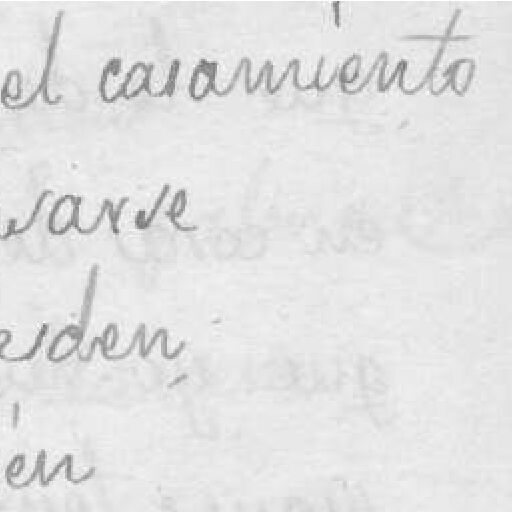 el casamiento
sarse
rden
én